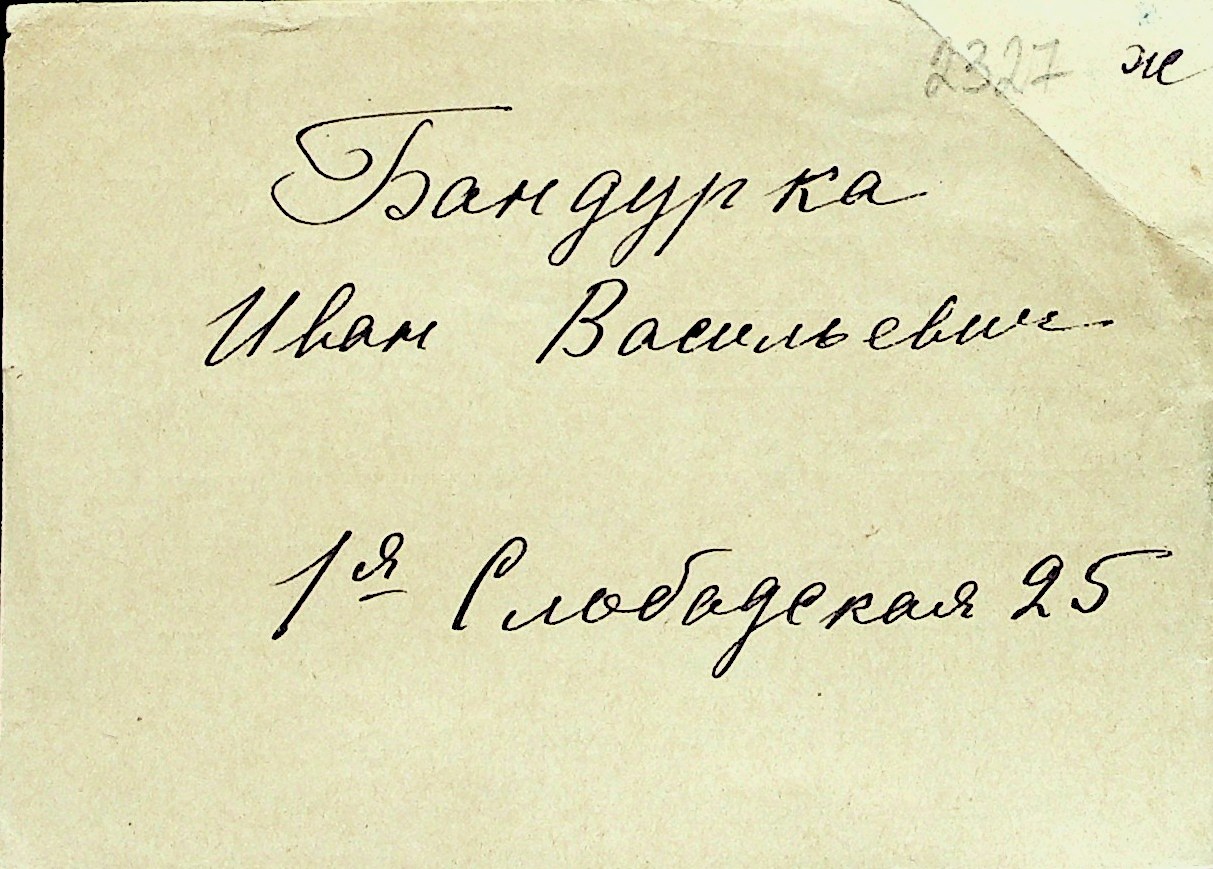 2327 ж
Бандурка
Иван Васильевич
1я Слободская 25